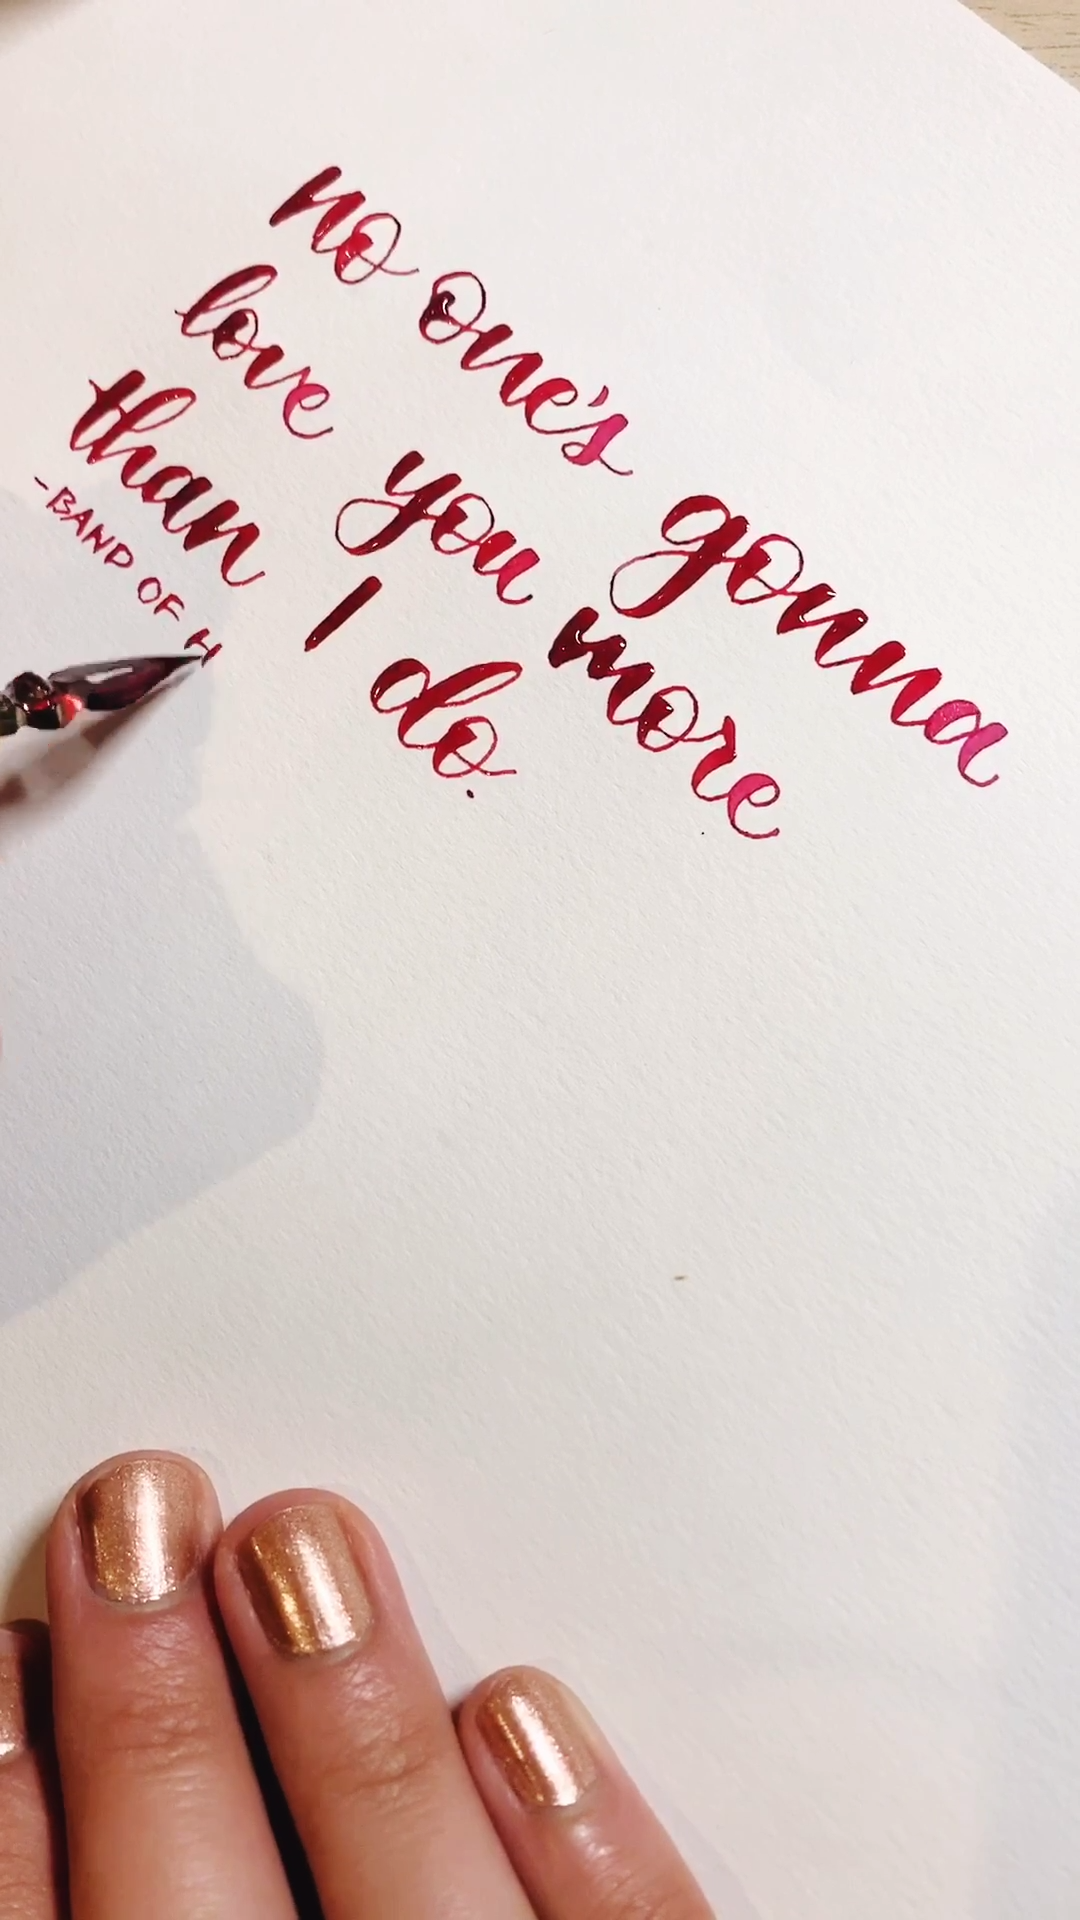 no one's gonna
love you more
than I do.
-BAND OF H